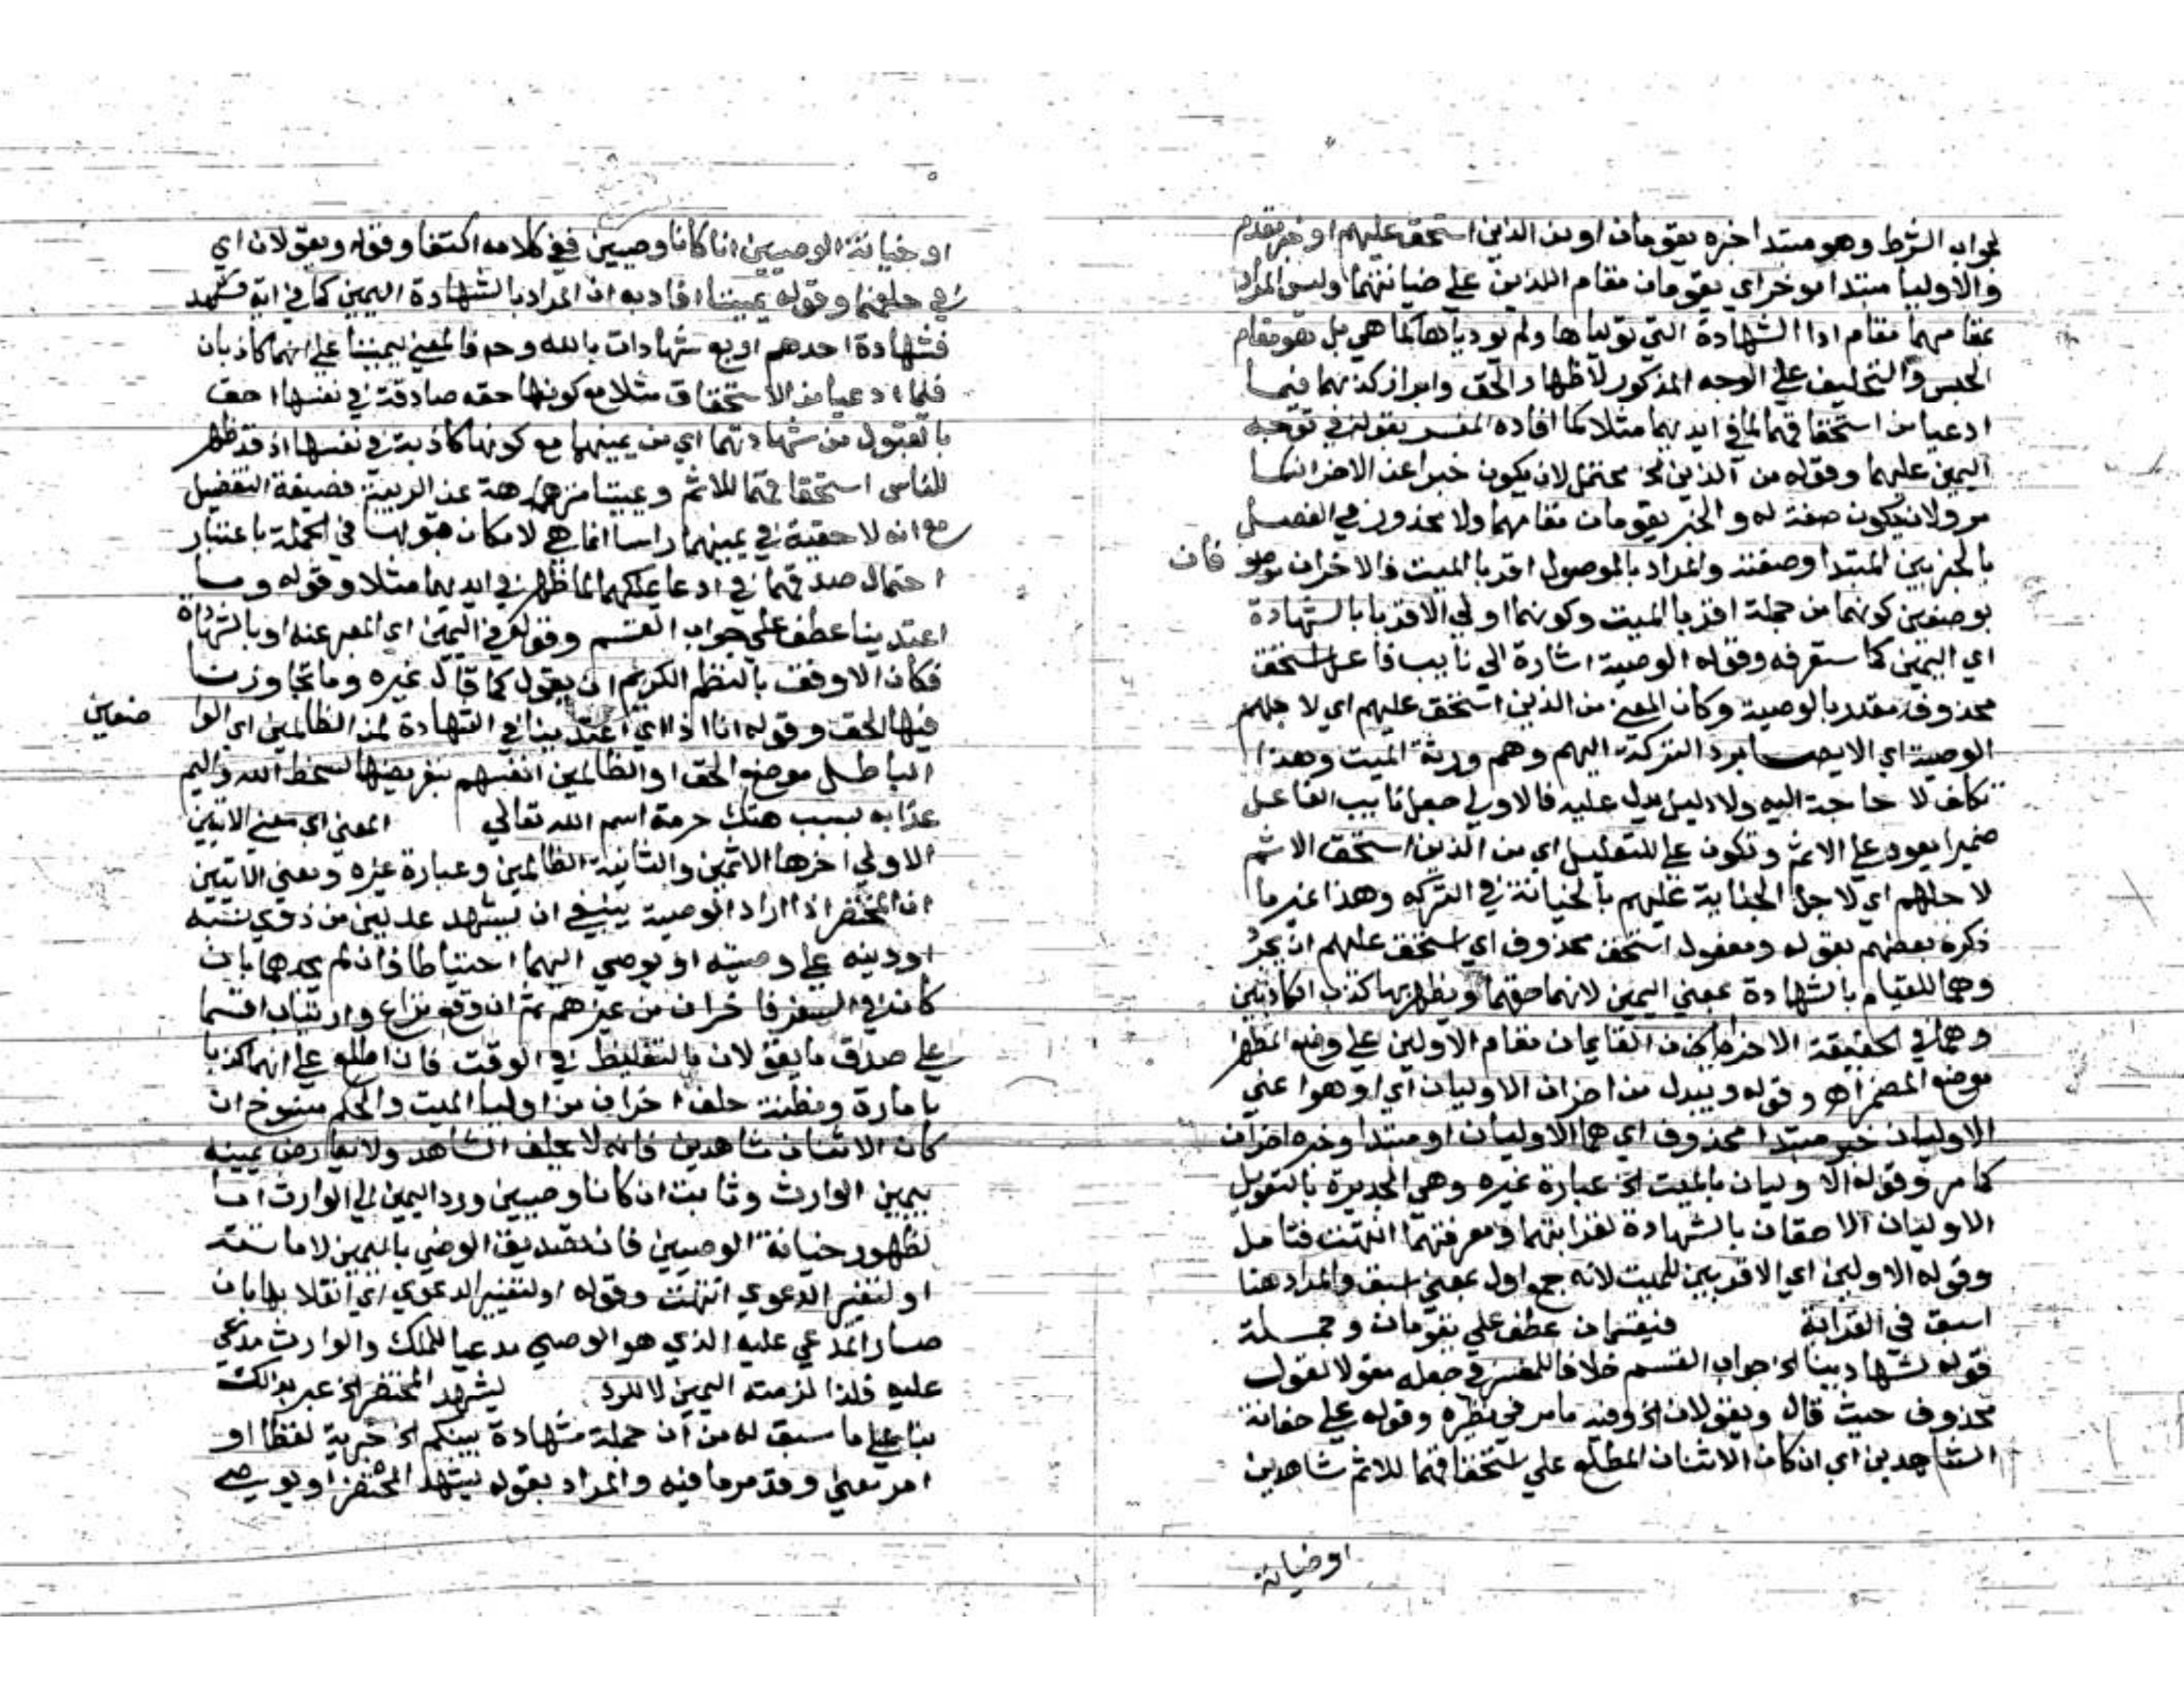 لجواب الشرط وهو مبتدا خبره يقومان او من الذين استحق عليهم او خبر مقدم
والاوليا مبتدا موخر اي يقومان مقام اللذين على خيانتهما وليس المراد
بمقامهما مقام ادا الشهادة التي توليا ها ولم يودياها كما هي بل هو مقام
الحبس والتحليف على الوجه المذكور لاظهار الحق وابراز كذبهما فيما
ادعيا من استحقاقهما لما في ايديهما مثلا كما افاده المفسر بقوله في توجيه
اليمين عليهما وقوله من الذين الخ محتمل لان يكون خبرا عن الاخران كما
مر ولان يكون صفة له والخبر يقومان مقامهما ولا محذور في الفصل
بالخبر بين المبتدا وصفته والمراد بالموصول اقربا الميت فالاخران
فان
بوصفين كونهما من جملة اقربا الميت وكونهما اولي الاقربا بالشهادة
اي اليمين كما ستعرفه وقوله الوصية اشارة الي نايب فاعل استحق
محذوف مقدر بالوصية وكان المعني من الذين استحق عليهم اي لاجلهم
الوصية اي الايصا برد التركة اليهم وهم ورثة الميت وهذا
تكلف لا حاجة اليه ولا دليل يدل عليه فالاولي جعل نايب الفاعل
ضميرا يعود علي الاثم وتكون علي للتعليل اي من الذين استحق الاثم
لاجلهم اي لاجل الجناية عليهم بالخيانة في التركه وهذا غير ما
ذكره بعضهم بقوله ومفعول استحق محذوف اي استحق عليهم ان يجرد
وهما للقيام بالشهادة بمعني اليمين لانها حقهما ويظهر بها كذب الكاذبين
وهما في الحقيقة الاخران القايمان مقام الاولين علي وضع المظهر
موضع المضمر اهـ وقوله ويبدل من اخران الاوليان اي او هو اعني
الاوليان خبر مبتدا محذوف اي هما الاوليان او مبتدا وخبره اخران
كما مر وقوله الاوليان بالميت الخ عبارة غيره وهي الجديرة بالتعويل
الاوليان الاحقان بالشهادة لقرابتهما ومعرفتهما انتهت فتامل
وقوله الاولين اي الاقربين للميت لانه جمع اول بمعني اسبق والمراد هنا
اسبق في القرابة فيقسمان عطف علي يقومان وجملة
قوله لشهادتنا الخ جواب القسم خلافا للمفسر في جعله مقولا لقول
محذوف حيث قال ويقولان الخ وفيه ما مر في نظيره وقوله علي خيانة
الشاهدين اي ان كان الاثنان المطلع علي استحقاقهما للاثم شاهدين
او خيانة
او خيانة الوصيين ان كانا وصيين ففي كلامه اكتفا وقوله ويقولان اي
في حلفهما وقوله يميننا افاد به ان المراد بالشهادة اليمين كما في اية
فشهادة احدهم اربع شهادات بالله وح فالمعني ليميننا علي انهما كاذبان
فلما ادعيا من الاستحقاق مثلا مع كونها حقه صادقة في نفسها احق
بالقبول من شهادتهما اي من يمينهما مع كونها كاذبة في نفسها اذ قد ظهر
للناس استحقاقهما للاثم ويميننا منزهة عن الريبة فصيغة التفضيل
مع انه لا حقية في يمينهما راسا انما هي لامكان قبولها في الجملة باعتبار
احتمال صدقهما في ادعا ملكهما لما ظهر في ايديهما مثلا وقوله وما
اعتدينا عطف علي جواب القسم وقوله في اليمين اي المعبر عنه اوبالشهادة
فكان الاوفق بالنظم الكريم ان يقول كما قال غيره وما تجاوزنا
فيها الحق وقوله انا اذا اي اعتدينا في الشهادة لمن الظالمين اي الوا
ضعين
الباطل موضع الحق او الظالمين انفسهم بتعريضها لسخط الله واليم
عذابه بسبب هتك حرمة اسم الله تعالي المعني اي معني الايتين
الاولي اخرها الاثمين والثانية الظالمين وعبارة غيره ومعني الايتين
ان المحتضر اذا اراد الوصية ينبغي ان يشهد عدلين من ذوي نسبه
او دينه علي وصيته او يوصي اليهما احتياطا فان لم يجدهما بان
كان في السفر فاخران من غيرهم ثم ان وقع نزاع وارتياب اقسما
علي صدق ما يقولان بالتغليظ في الوقت فان اطلع علي انهما كذبا
بامارة ومظنة حلف اخران من اوليا الميت والحكم منسوخ ان
كان الاثنان شاهدين فانه لا يحلف الشاهد ولا يعارض يمينه
بيمين الوارث وثابت ان كانا وصيين ورد اليمين الي الوارث اما
لظهور خيانة الوصيين فان تصديق الوصي باليمين لامانته
او لتغير الدعوي انتهت وقوله او لتغير الدعوي اي انقلابها بان
صار المدعي عليه الذي هو الوصي مدعيا للملك والوارث مدعي
عليه فلذا لزمته اليمين لا للرد ليشهد المحتضر الخ عبر بذلك
بنا علي ما سبق له من ان جملة شهادة بينكم الخ خبرية لفظا او
امر معني وقد مر ما فيه والمراد بقوله ليشهد المحتضر او يوصي